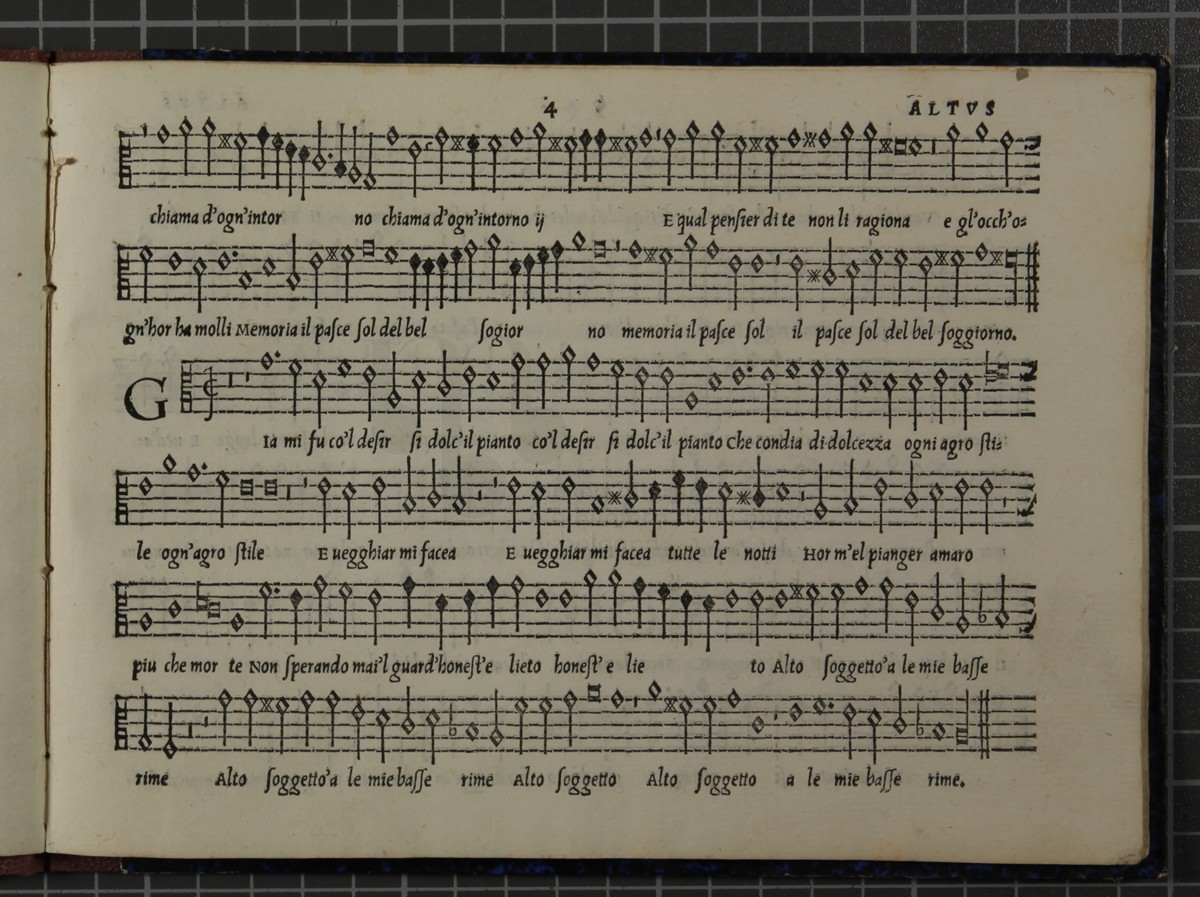 4 ALTVS
chiama d'ogn'intor no chiama d'ogn'intorno ij E qual penſier di te non li ragiona e gl'occh'o=
gn'hor ha molli Memoria il paſce ſol del bel ſogior no memoria il paſce ſol il paſce ſol del bel ſoggiorno.
G Ia mi fu co'l deſir ſi dolc'il pianto co'l deſir ſi dolc'il pianto Che condia di dolcezza ogni agro ſti=
le ogn'agro ſtile E uegghiar mi facea E uegghiar mi facea tutte le notti Hor m'el pianger amaro
piu che mor te Non ſperando mai'l guard'honeſt'e lieto honeſt' e lie to Alto ſoggetto'a le mie baſſe
rime Alto ſoggetto'a le mie baſſe rime Alto ſoggetto Alto ſoggetto a le mie baſſe rime.